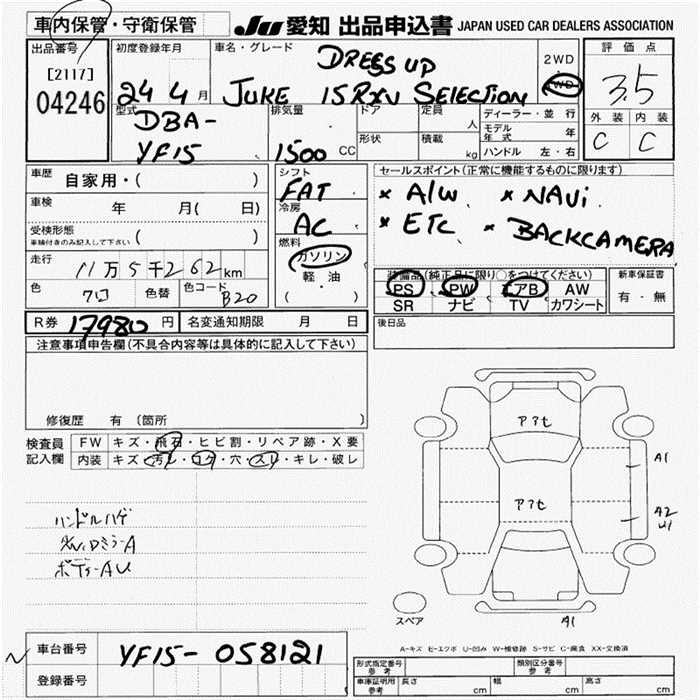 車内保管・守衛保管
JU 愛知 出品申込書 JAPAN USED CAR DEALERS ASSOCIATION
出品番号
[2117]
04246
初度登録年月
24 4 月
車名・グレード
DRESS UP
JUKE 15RXV SELECTION
2WD
4WD
評価点
3.5
外装 内装
C C
型式
DBA-
YF15
排気量
1500 CC
ドア
形状
定員
人
積載
kg
ディーラー・並行
モデル年式 年
ハンドル 左・右
車歴 自家用・( )
車検 年 月( 日)
受検形態
車検付きのみ記入して下さい ( )
走行 11万5千262km
色 7ロ 色替 色コード B20
シフト
FAT
冷房
AC
燃料
ガソリン
軽油
( )
セールスポイント(正常に機能するものに限ります)
× A/W × NAVi
× ETC × BACKCAMERA
装備品(純正品に限り○をつけてください)
PS PW エアB AW
SR ナビ TV カワシート
新車保証書
有・無
R券 17980 円 名変通知期限 月 日
後日品
注意事項申告欄(不具合内容等は具体的に記入して下さい)
修復歴 有 (箇所 )
検査員
記入欄
FW キズ・飛石・ヒビ割・リペア跡・X要
内装 キズ・汚レ・コゲ・穴・スレ・キレ・破レ
ハンドルハゲ
ボディーAU
アアセ
アアセ
A1
A2
U1
A1
スペア
A-キズ E-エクボ U-凹み W-補修跡 S-サビ C-腐食 XX-交換済
車台番号 YF15-058121
登録番号
型式指定番号
参考
類別区分番号
参考
車庫証明用
参考
長さ cm 幅 cm 高さ cm